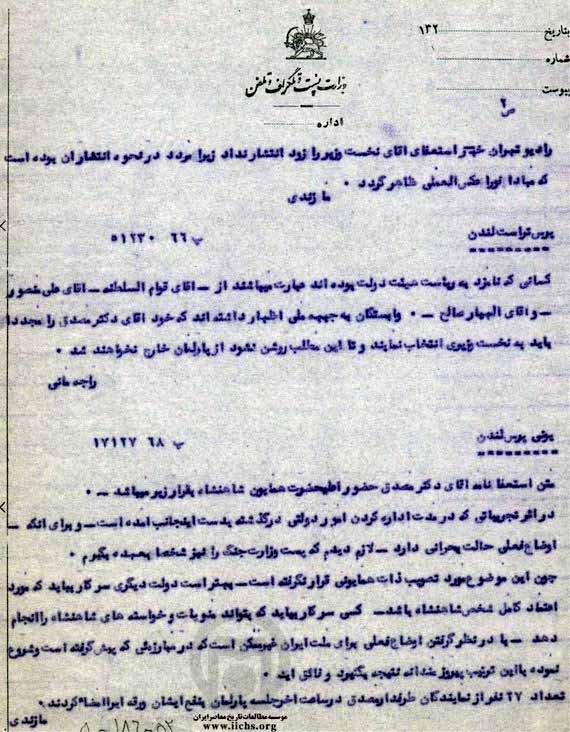 بتاریخ ۱۳۲
شماره
پیوست
وزارت پست و تلگراف و تلفن
اداره
ص ۲
رادیو تهران خبر استعفای اقای نخست وزیر را زود انتشار نداد زیرا مردد در نحوه انتشاران بوده است
که مبادا فورا عکس العملی ظاهر گردد ۰
مازندی
پرس تراست لندن پ ۶۶ ۵۱۲۳۰
کسانی که نامزد به ریاست هیئت دولت بوده اند عبارت میباشند از ـ اقای قوام السلطنه ـ اقای علی منصور
ـ و اقای الهیار صالح ـ ۰ وابستگان به جبهه ملی اظهار داشته اند که خود اقای دکتر مصدق را مجددا
باید به نخست وزیری انتخاب نمایند و تا این مطلب روشن نشود از پارلمان خارج نخواهند شد ۰
راجه مانی
یونی پرس لندن پ ۶۸ ۱۷۱۲۷
متن استعفا نامه اقای دکتر مصدق حضور اعلیحضرت همایون شاهنشاه بقرار زیر میباشد ـ ۰
در اثر تجربیاتی که در مدت اداره کردن امور دولتی در گذشته بدست اینجانب امده است ـ و برای انکه ـ
اوضاع فعلی حالت بحرانی دارد ـ لازم دیدم که پست وزارت جنگ را نیز شخصا بعهده بگیرم ۰
چون این موضوع مورد تصویب ذات همایونی قرار نگرفته است ـ بهتر است دولت دیگری سر کار بیاید که مورد
اعتماد کامل شخص شاهنشاه باشد ـ کسی سر کار بیاید که بتواند منویات و خواسته های شاهنشاه را انجام
دهد ـ با در نظر گرفتن اوضاع فعلی برای ملت ایران غیرممکن است که در مبارزیش که پیش گرفته است و شروع
نموده با این ترتیب پیروزمندانه نتیجه بگیرد و فائق اید ۰
تعداد ۲۷ نفر از نمایندگان طرفدار مصدق در ساعت اخر جلسه پارلمان بنفع ایشان ورقه ایرا امضا کردند ۰
مازندی
موسسه مطالعات تاریخ معاصر ایران
www.iichs.org